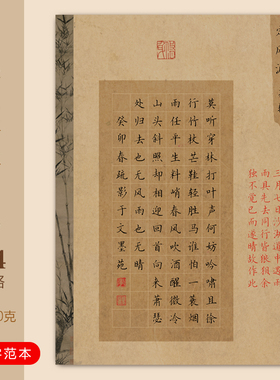 三月七日沙湖道中遇雨
雨具先去同行皆狼狈余
独不觉已而遂晴故作此
莫听穿林打叶声何妨吟啸且徐
行竹杖芒鞋轻胜马谁怕一蓑烟
雨任平生料峭春风吹酒醒微冷
山头斜照却相迎回首向来萧瑟
处归去也无风雨也无晴
癸卯春疏影于文墨苑
4
格
0克
字范本